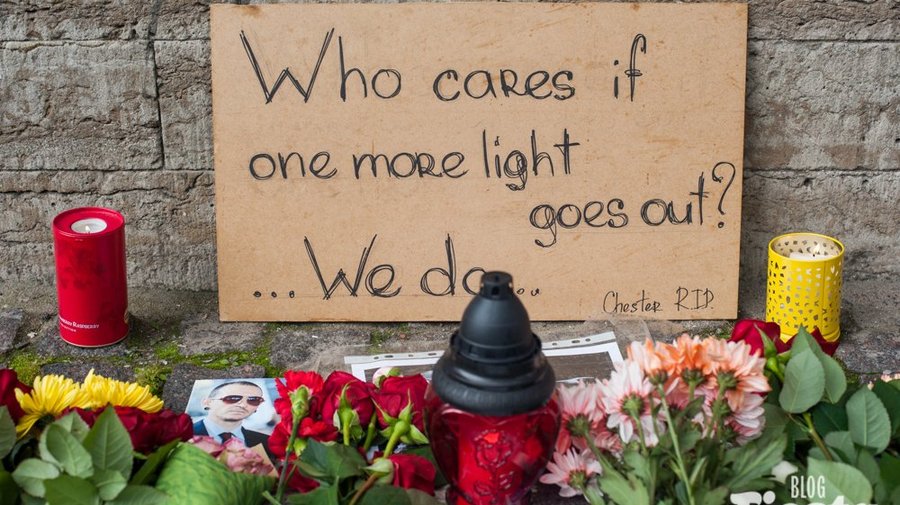 Who cares if
one more light
goes out?
...We do...
Chester R.I.P.
RASPBERRY
BLOG